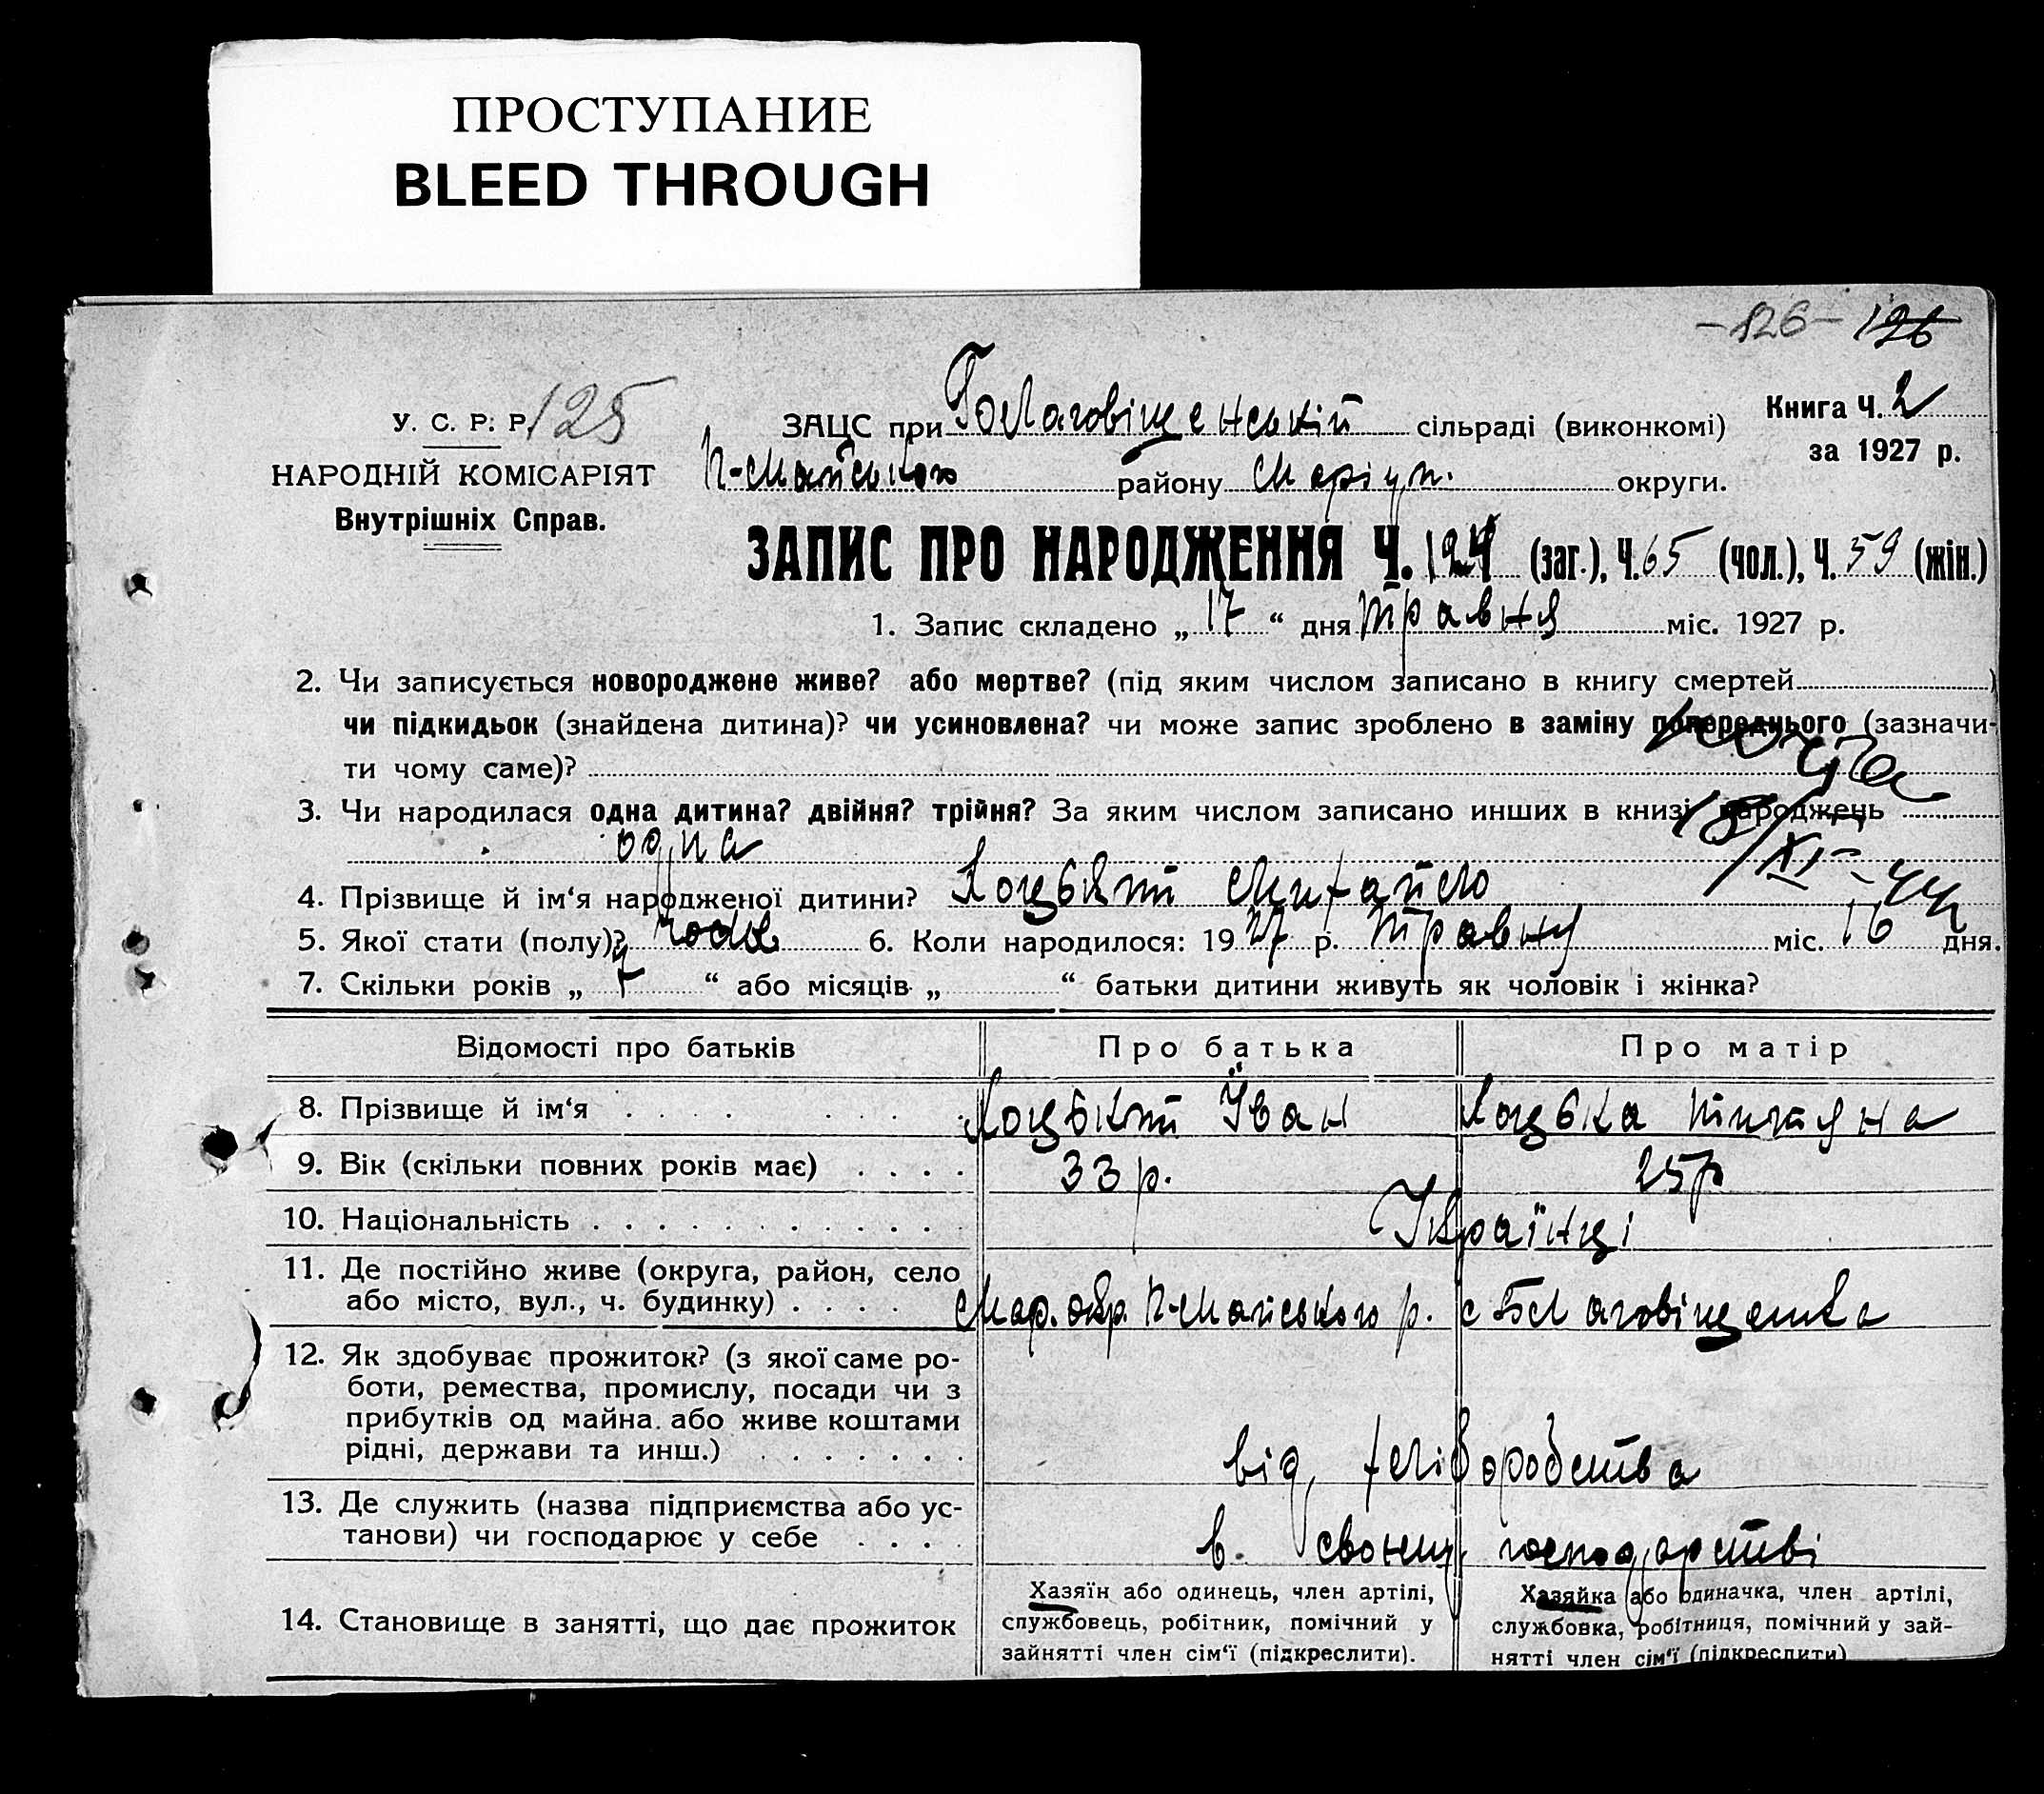 ПРОСТУПАНИЕ
BLEED THROUGH
-126- 126
У. С. Р. Р. 125
НАРОДНІЙ КОМІСАРІЯТ
Внутрішніх Справ.
ЗАЦС при Благовіщенській сільраді (виконкомі)
П-Майського району Маріуп. округи.
Книга Ч. 2
за 1927 р.
ЗАПИС ПРО НАРОДЖЕННЯ Ч. 124 (заг.), Ч. 65 (чол.), Ч. 59 (жін.)
1. Запис складено „ 17 “ дня травня міс. 1927 р.
2. Чи записується новороджене живе? або мертве? (під яким числом записано в книгу смертей )
чи підкидьок (знайдена дитина)? чи усиновлена? чи може запис зроблено в заміну попереднього (зазначи-
ти чому саме)?
3. Чи народилася одна дитина? двійня? трійня? За яким числом записано инших в книзі народжень
одна
15/XI-44
4. Прізвище й ім‘я народженої дитини? Коцький Михайло
5. Якої стати (полу)? чол. 6. Коли народилось: 1927 р. травня міс. 16 дня.
7. Скільки років „ “ або місяців „ “ батьки дитини живуть як чоловік і жінка?
Відомості про батьків Про батька Про матір
8. Прізвище й ім‘я Коцький Іван Коцька Титяна
9. Вік (скільки повних років має) 33 р. 25 р
10. Національність Українці
11. Де постійно живе (округа, район, село
або місто, вул., ч. будинку) Мар. окр. П-Майського р. с Благовіщенка
12. Як здобуває прожиток? (з якої саме ро-
боти, ремества, промислу, посади чи з
прибутків од майна або живе коштами
рідні, держави та инш.) від хліборобства
13. Де служить (назва підприємства або ус-
танови) чи господарює у себе в своєму господарстві
14. Становище в занятті, що дає прожиток
Хазяїн або одинець, член артілі,
службовець, робітник, помічний у
зайнятті член сім‘ї (підкреслити).
Хазяйка або одиначка, член артілі,
службовка, робітниця, помічний у зай-
нятті член сім‘ї (підкреслити)